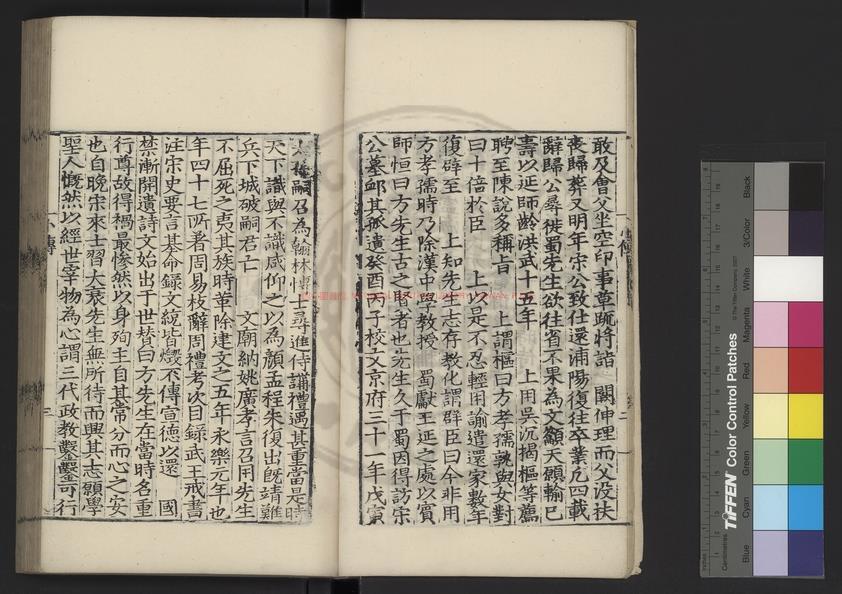 敢及會父坐空印事草疏將詣　闕伸理而父没扶
喪歸葬又明年宋公致仕還浦陽復往卒業凡四載
辭歸公尋徙蜀先生欲往省不果為文籲天願輸巳
壽以延師齡洪武十五年　上用吳沉揭樞等薦
聘至陳說多稱旨　上謂樞曰方孝孺孰與女對
曰十倍於臣　上以是不忍輕用諭遣還家數年
復辟至　上知先生志存教化謂群臣曰今非用
方孝孺時乃除漢中學教授　蜀獻王延之處以賓
師恒曰方先生古之賢者也先生久于蜀因得訪宋
公墓卹其孤遺癸酉丙子校文京府三十一年戊寅
嗣召為翰林博士尋進侍講禮遇甚重當是時
天下識與不識咸仰之以為顏孟程朱復出既靖難
兵下城破嗣君亡　文廟納姚廣孝言召用先生
不屈死之夷其族時革除建文之五年永樂元年也
年四十七所者周易枝辭周禮考次目録武王戒書
注宋史要言基命録文統皆燬不傳宣德以還　國
禁漸開遺詩文始出于世賛曰方先生在當時名重
行尊故得禍最慘然以身殉主自其常分而心之安
也自晚宋來士習大衰先生無所待而興其志願學
聖人慨然以經世宰物為心謂三代政教鑿鑿可行
小傳
二
三
TIFFEN Color Control Patches
© The Tiffen Company, 2007
Centimetres
Inches
Blue
Cyan
Green
Yellow
Red
Magenta
White
3/Color
Black